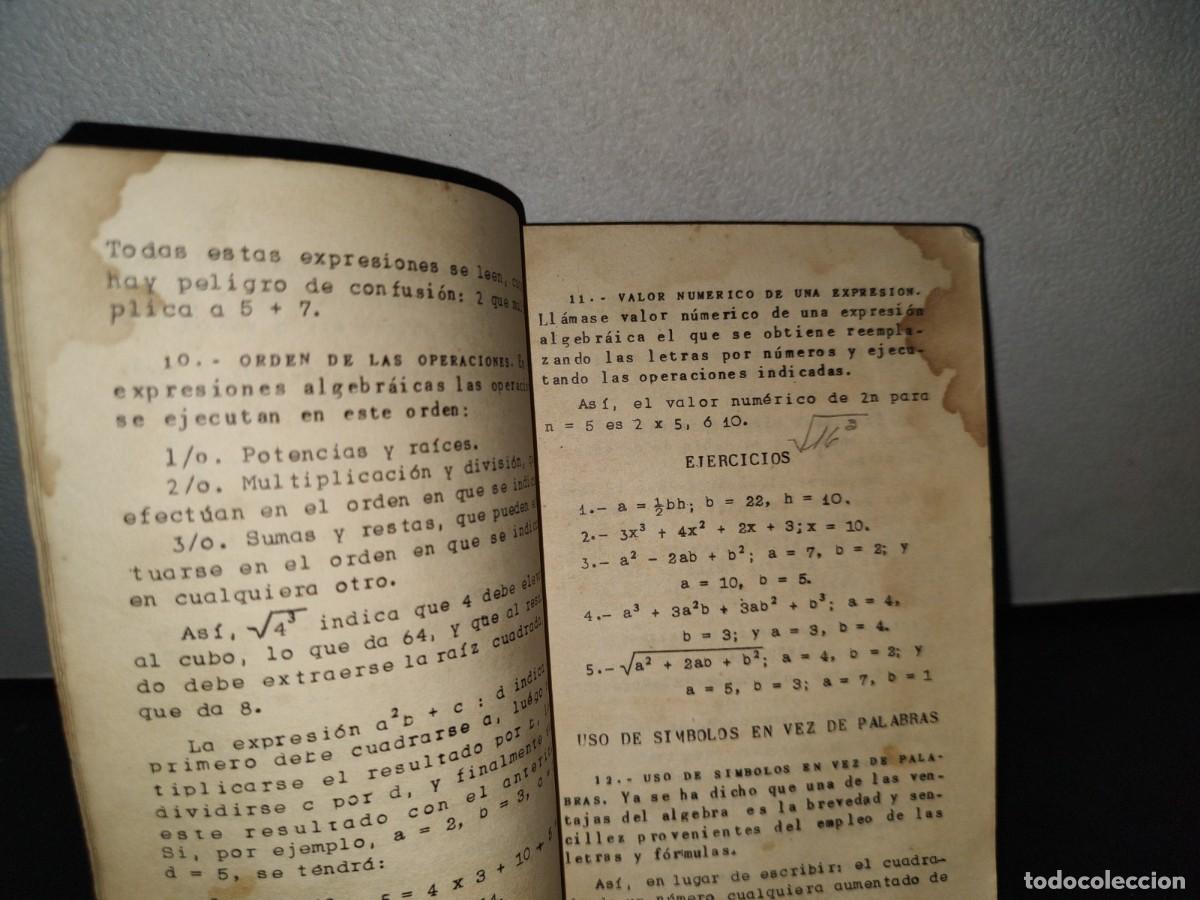 Todas estas expresiones se leen,
hay peligro de confusión: 2 que mul
plica a 5 + 7.
10.- ORDEN DE LAS OPERACIONES. En
expresiones algebráicas las operacio
se ejecutan en este orden:
1/o. Potencias y raíces.
2/o. Multiplicación y división,
efectúan en el orden en que se indic
3/o. Sumas y restas, que pueden
tuarse en el orden en que se indic
en cualquiera otro.
Así, √4³ indica que 4 debe eleva
al cubo, lo que da 64, y que al resu
do debe extraerse la raíz cuadrada
que da 8.
La expresión a²b + c : d indica
primero debe cuadrarse a, luégo
tiplicarse el resultado por b,
dividirse c por d, y finalmente
este resultado con el anterio
Si, por ejemplo, a = 2, b = 3, c
d = 5, se tendrá:
5 = 4 x 3 + 10 ÷ 5
11.- VALOR NUMERICO DE UNA EXPRESION.
Llámase valor númerico de una expresión
algebráica el que se obtiene reempla-
zando las letras por números y ejecu-
tando las operaciones indicadas.
Así, el valor numérico de 2n para
n = 5 es 2 x 5, ó 10.
√16³
EJERCICIOS
1.- a = ½bh; b = 22, h = 10.
2.- 3x³ + 4x² + 2x + 3; x = 10.
3.- a² - 2ab + b²; a = 7, b = 2; y
a = 10, b = 5.
4.- a³ + 3a²b + 3ab² + b³; a = 4,
b = 3; y a = 3, b = 4.
5.- √a² + 2ab + b²; a = 4, b = 2; y
a = 5, b = 3; a = 7, b = 1
USO DE SIMBOLOS EN VEZ DE PALABRAS
12.- USO DE SIMBOLOS EN VEZ DE PALA-
BRAS. Ya se ha dicho que una de las ven-
tajas del algebra es la brevedad y sen-
cillez provenientes del empleo de las
letras y fórmulas.
Así, en lugar de escribir: el cuadra-
un número cualquiera aumentado de
todocoleccion